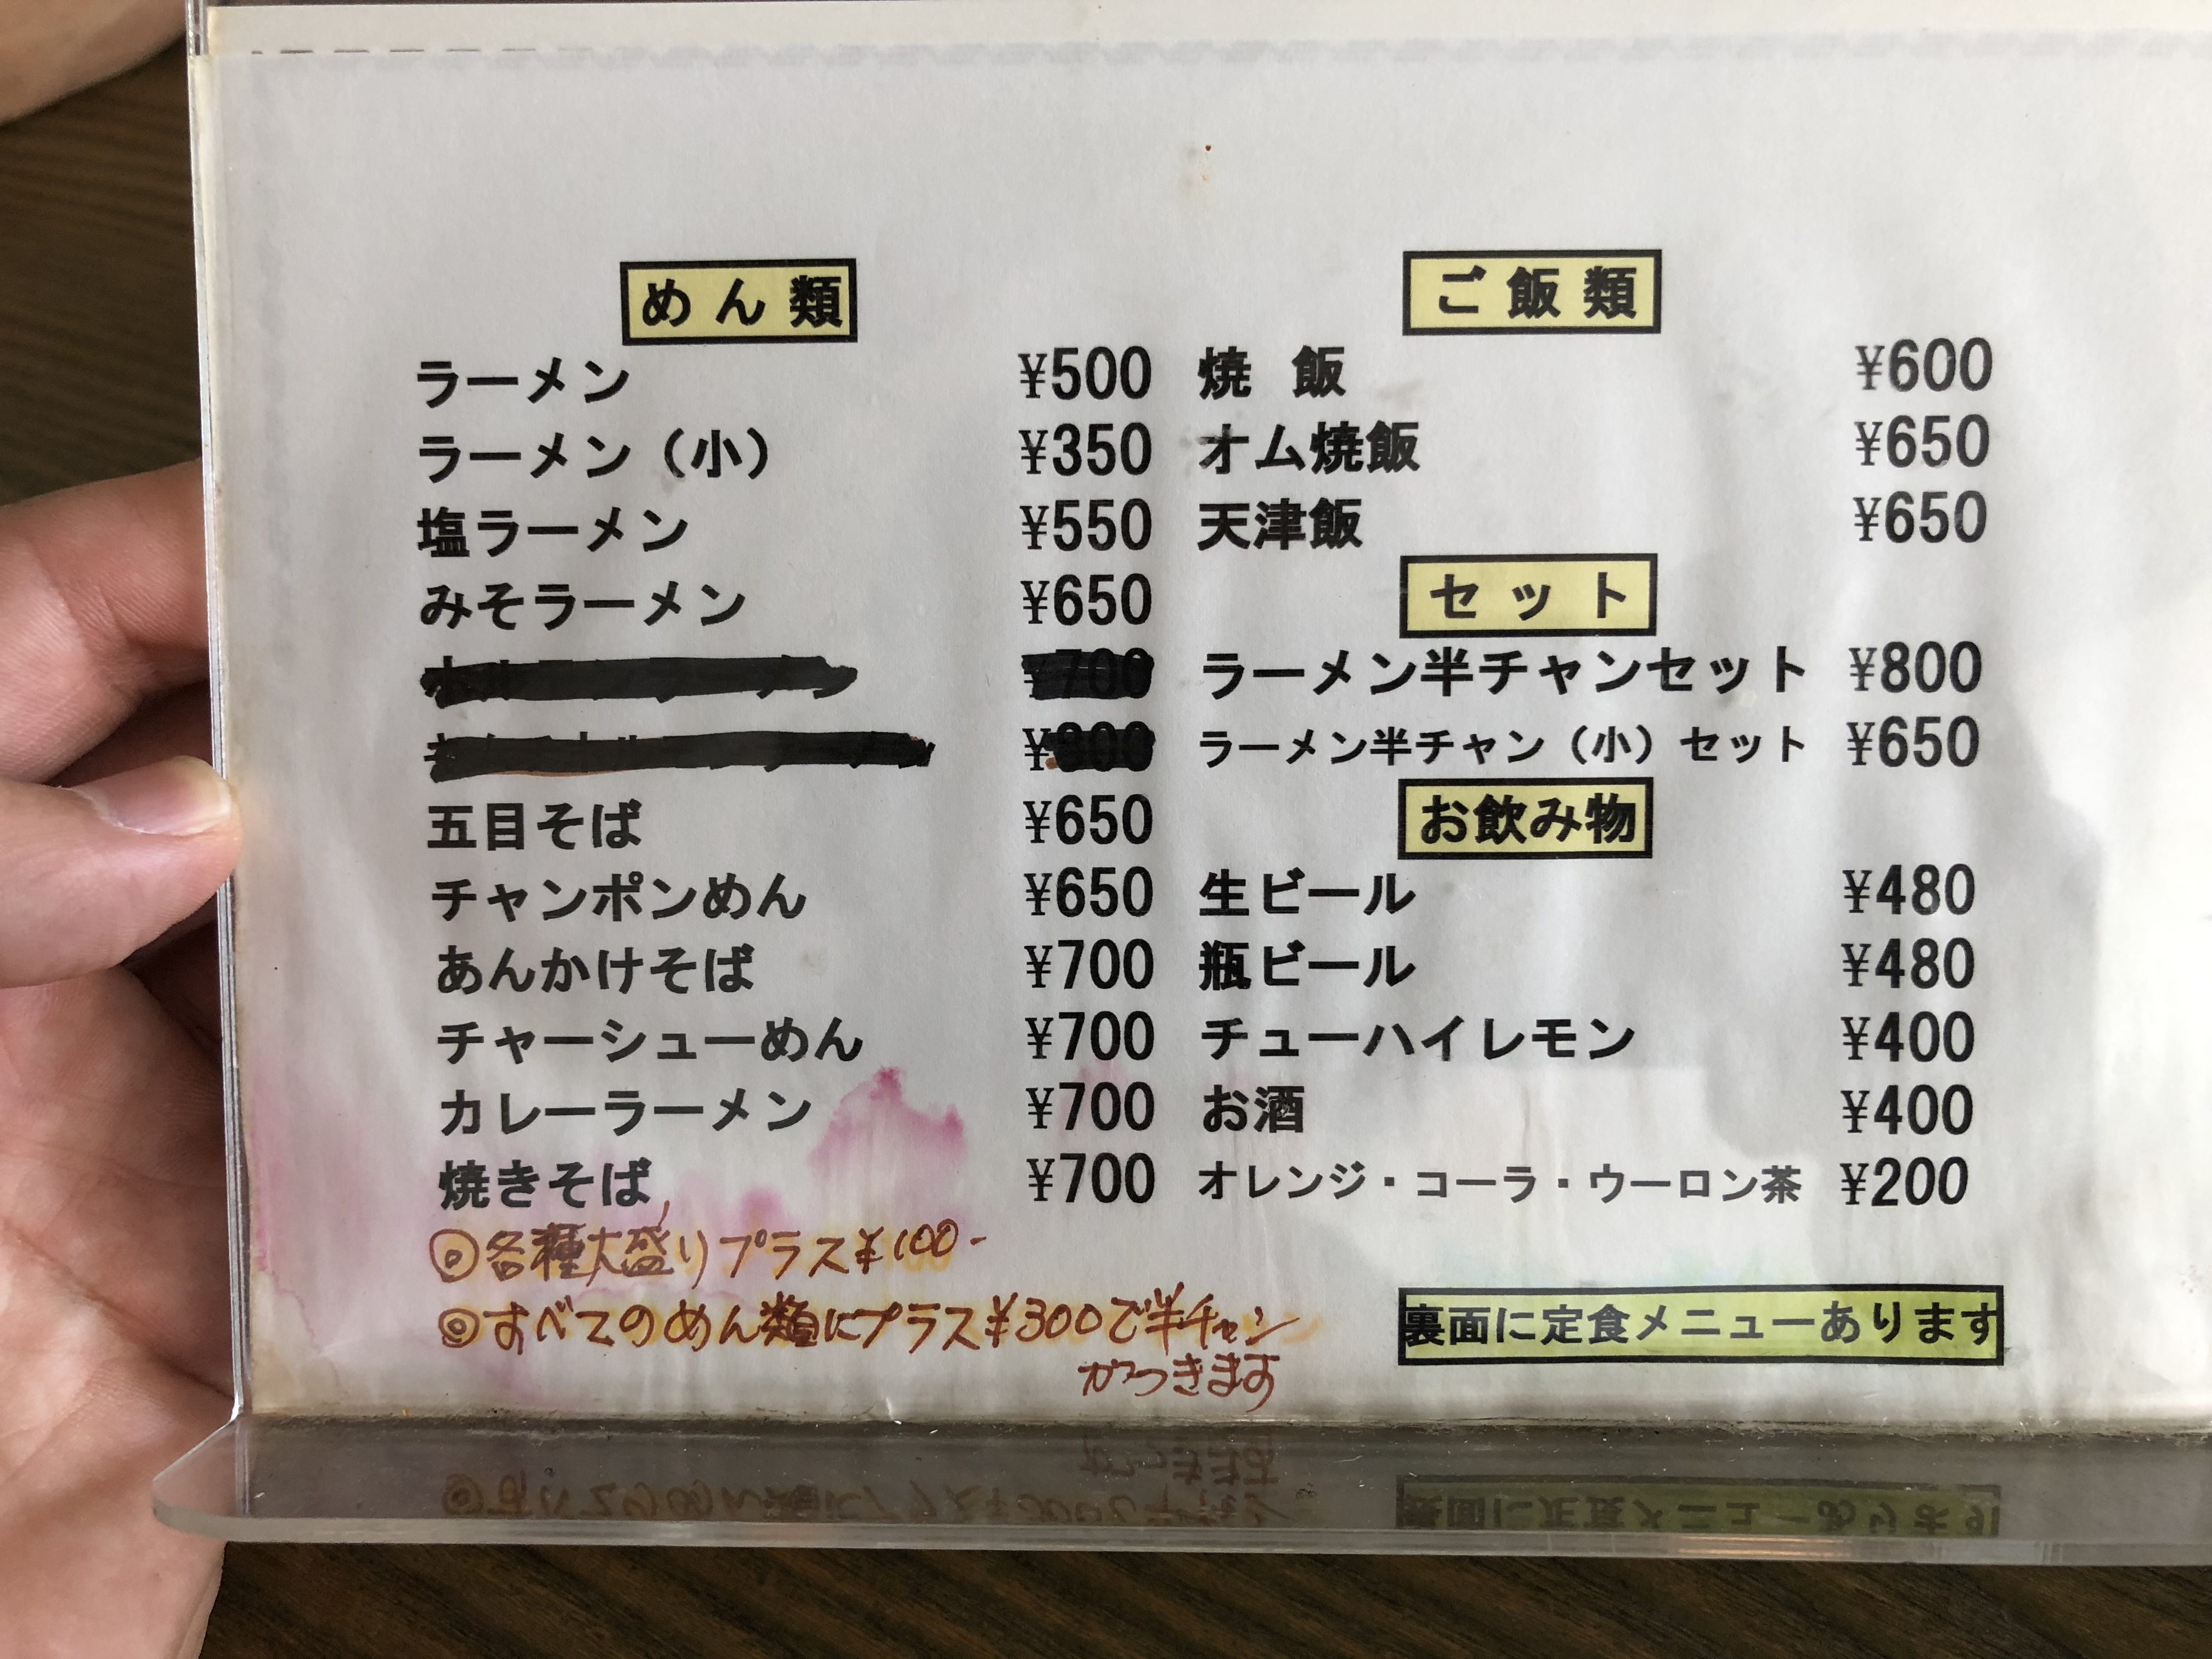 めん類
ラーメン ¥500
ラーメン（小） ¥350
塩ラーメン ¥550
みそラーメン ¥650
¥700
五目そば ¥650
チャンポンめん ¥650
あんかけそば ¥700
チャーシューめん ¥700
カレーラーメン ¥700
焼きそば ¥700
◎各種大盛りプラス¥100-
◎すべてのめん類にプラス¥300で半チャン
がつきます
ご飯類
焼飯 ¥600
オム焼飯 ¥650
天津飯 ¥650
セット
ラーメン半チャンセット ¥800
ラーメン半チャン（小）セット ¥650
お飲み物
生ビール ¥480
瓶ビール ¥480
チューハイレモン ¥400
お酒 ¥400
オレンジ・コーラ・ウーロン茶 ¥200
裏面に定食メニューあります